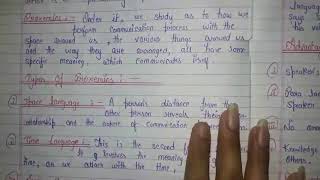 Proxemics :- Under it, we study as to how we
perform communication process with the
space around us, the various things around us
and the way they are arranged, all have some
specific meaning, which communicates itself.
Types Of Proxemics :-
Space Language :- A person's distance from the
other person reveals their
relationship and the extent of communication
Time Language :- This is the second
It involves the meaning
time, as we attach with the time,
Language
says
this
Advantag
Speaker's
Para
Speaker
No
Knowledge
others.